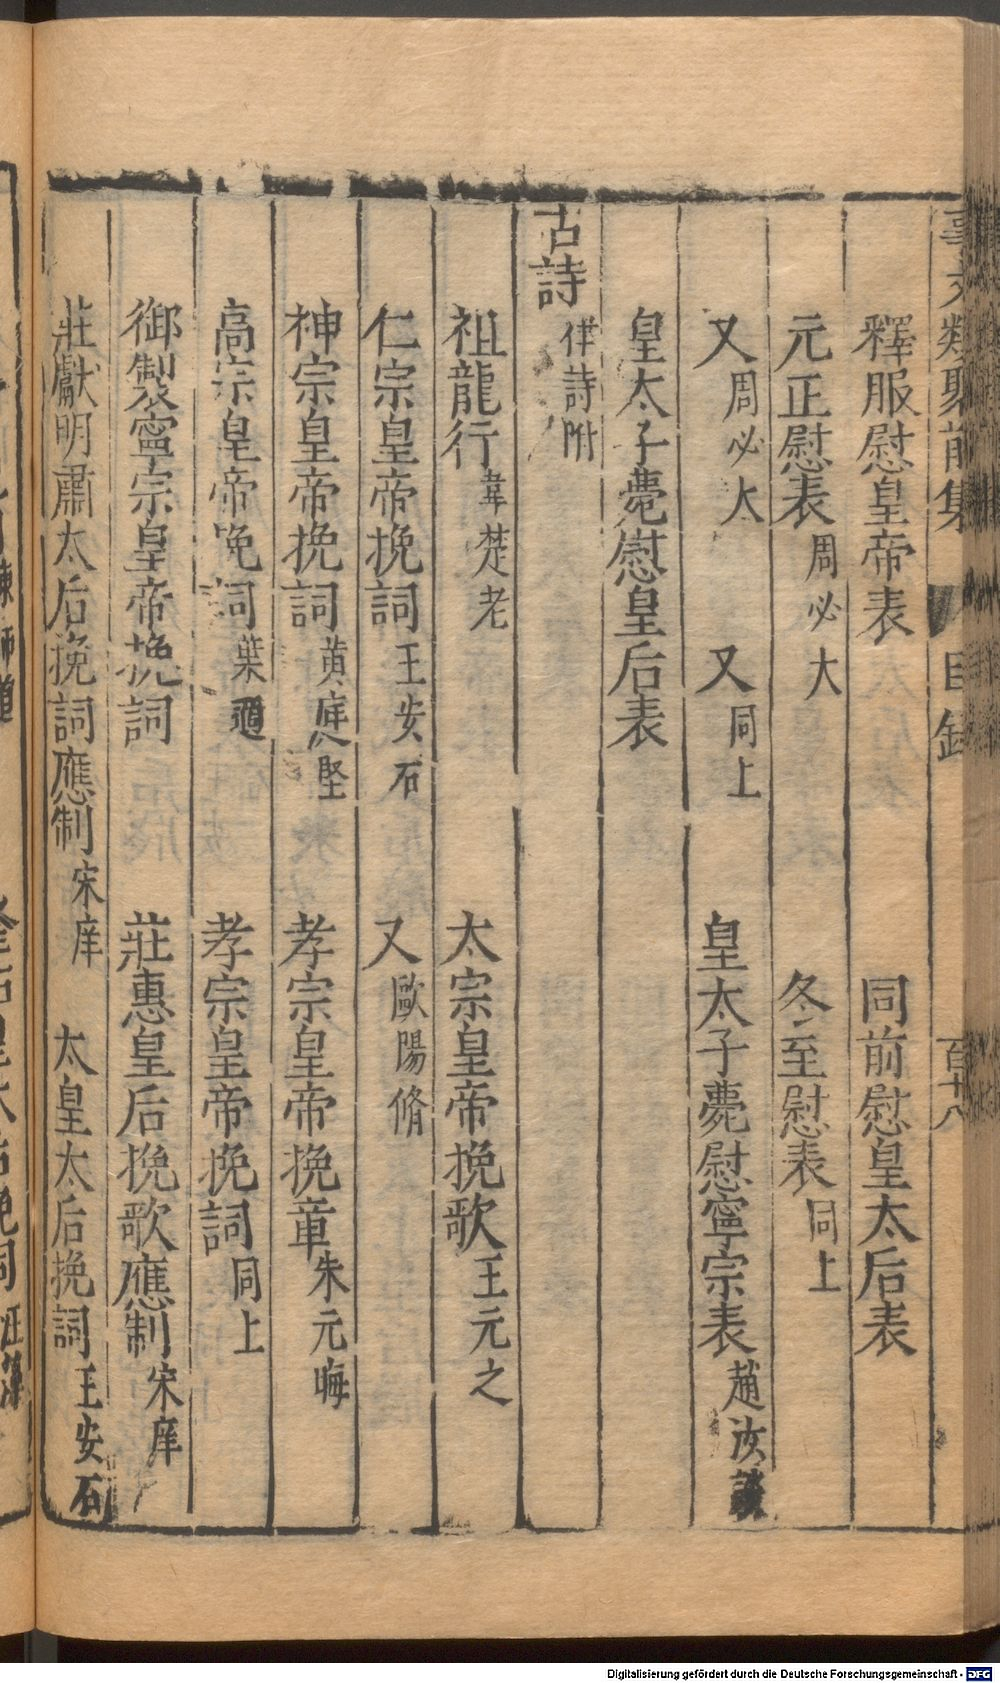 事文類聚前集 目錄 百十八
釋服慰皇帝表 同前慰皇太后表
元正慰表 周必大 冬至慰表 同上
又 周必大 又 同上 皇太子薨慰寧宗表 趙汝談
皇太子薨慰皇后表
古詩 律詩附
祖龍行 韋楚老 太宗皇帝挽歌 王元之
仁宗皇帝挽詞 王安石 又 歐陽脩
神宗皇帝挽詞 黃庭堅 孝宗皇帝挽章 朱元晦
高宗皇帝挽詞 葉適 孝宗皇帝挽詞 同上
御製寧宗皇帝挽詞 莊惠皇后挽歌應制 宋庠
莊獻明肅太后挽詞應制 宋庠 太皇太后挽詞 王安石
陳師道
Digitalisierung gefördert durch die Deutsche Forschungsgemeinschaft - DFG